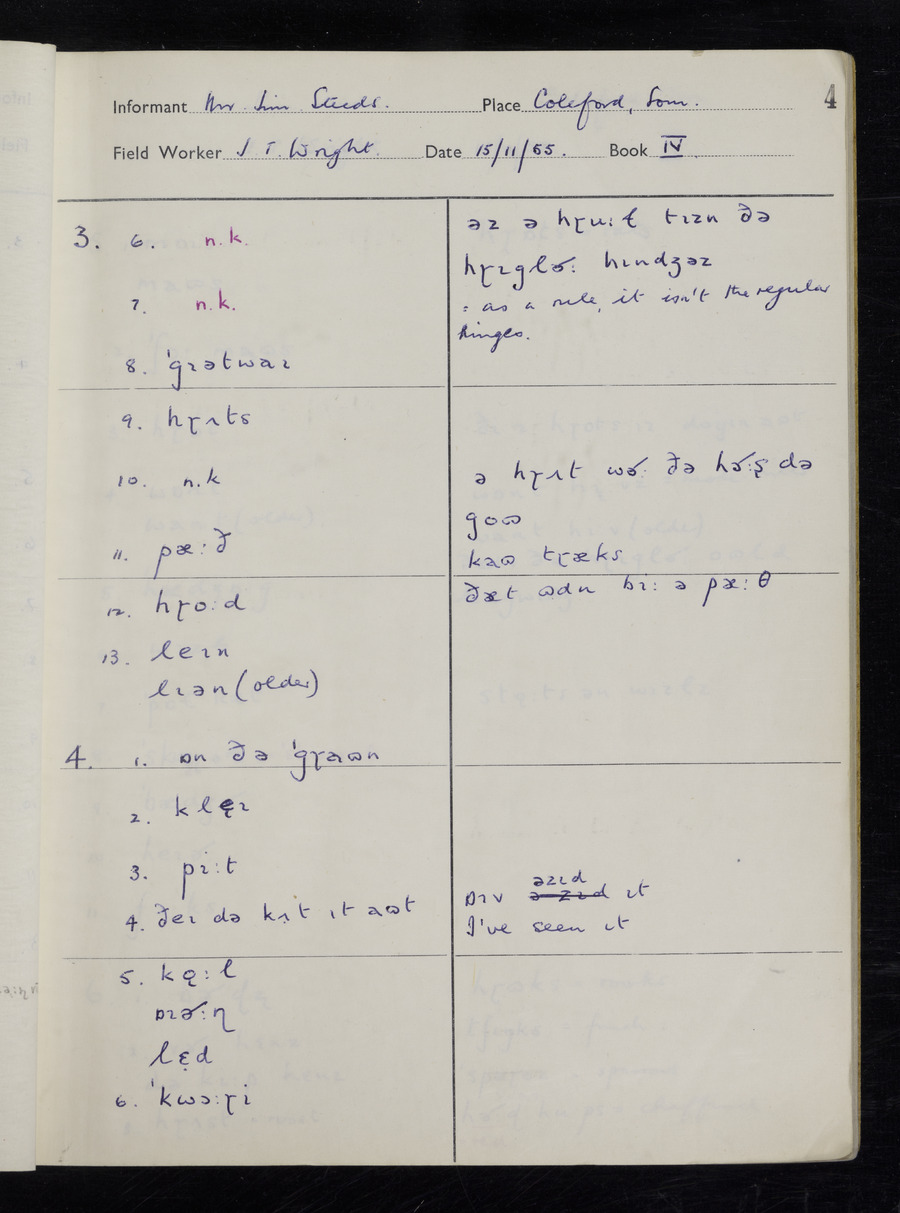 4
Informant Mr Jim Steeds. Place Coleford, Som.
Field Worker J T. Wright. Date 15/11/55. Book IV
3. 6. n.k.
7. n.k.
8. ˈgɪətwaɪ
9. hɽʌts
10. n.k
11. pæ:ð
12. hɽo:d
13. leɪn
lɪən (older)
4. 1. ɒn ðə ˈgɽaʊn
2. klęɪ
3. pɪ:t
4. ðeɪ də kʌ̣t ɪt aʊt
5. kǫ:l
ɒɪɚ:ɳ
lɛ̣d
6. ˈkwɔ:ɽi
əz ə hɽu:ɫ tɪzn ðə
hɽɪglɚ: hɪndʒəz
: as a rule, it isn't the regular
hinges.
ə hɽʌt wɚ: ðə hɚ:ʂ də
goʊ
kaʊ tɽæks
ðæt ʊdn bɪ: ə pæ:θ
əzɪd
ɒɪv ɪt
I've seen ɪt